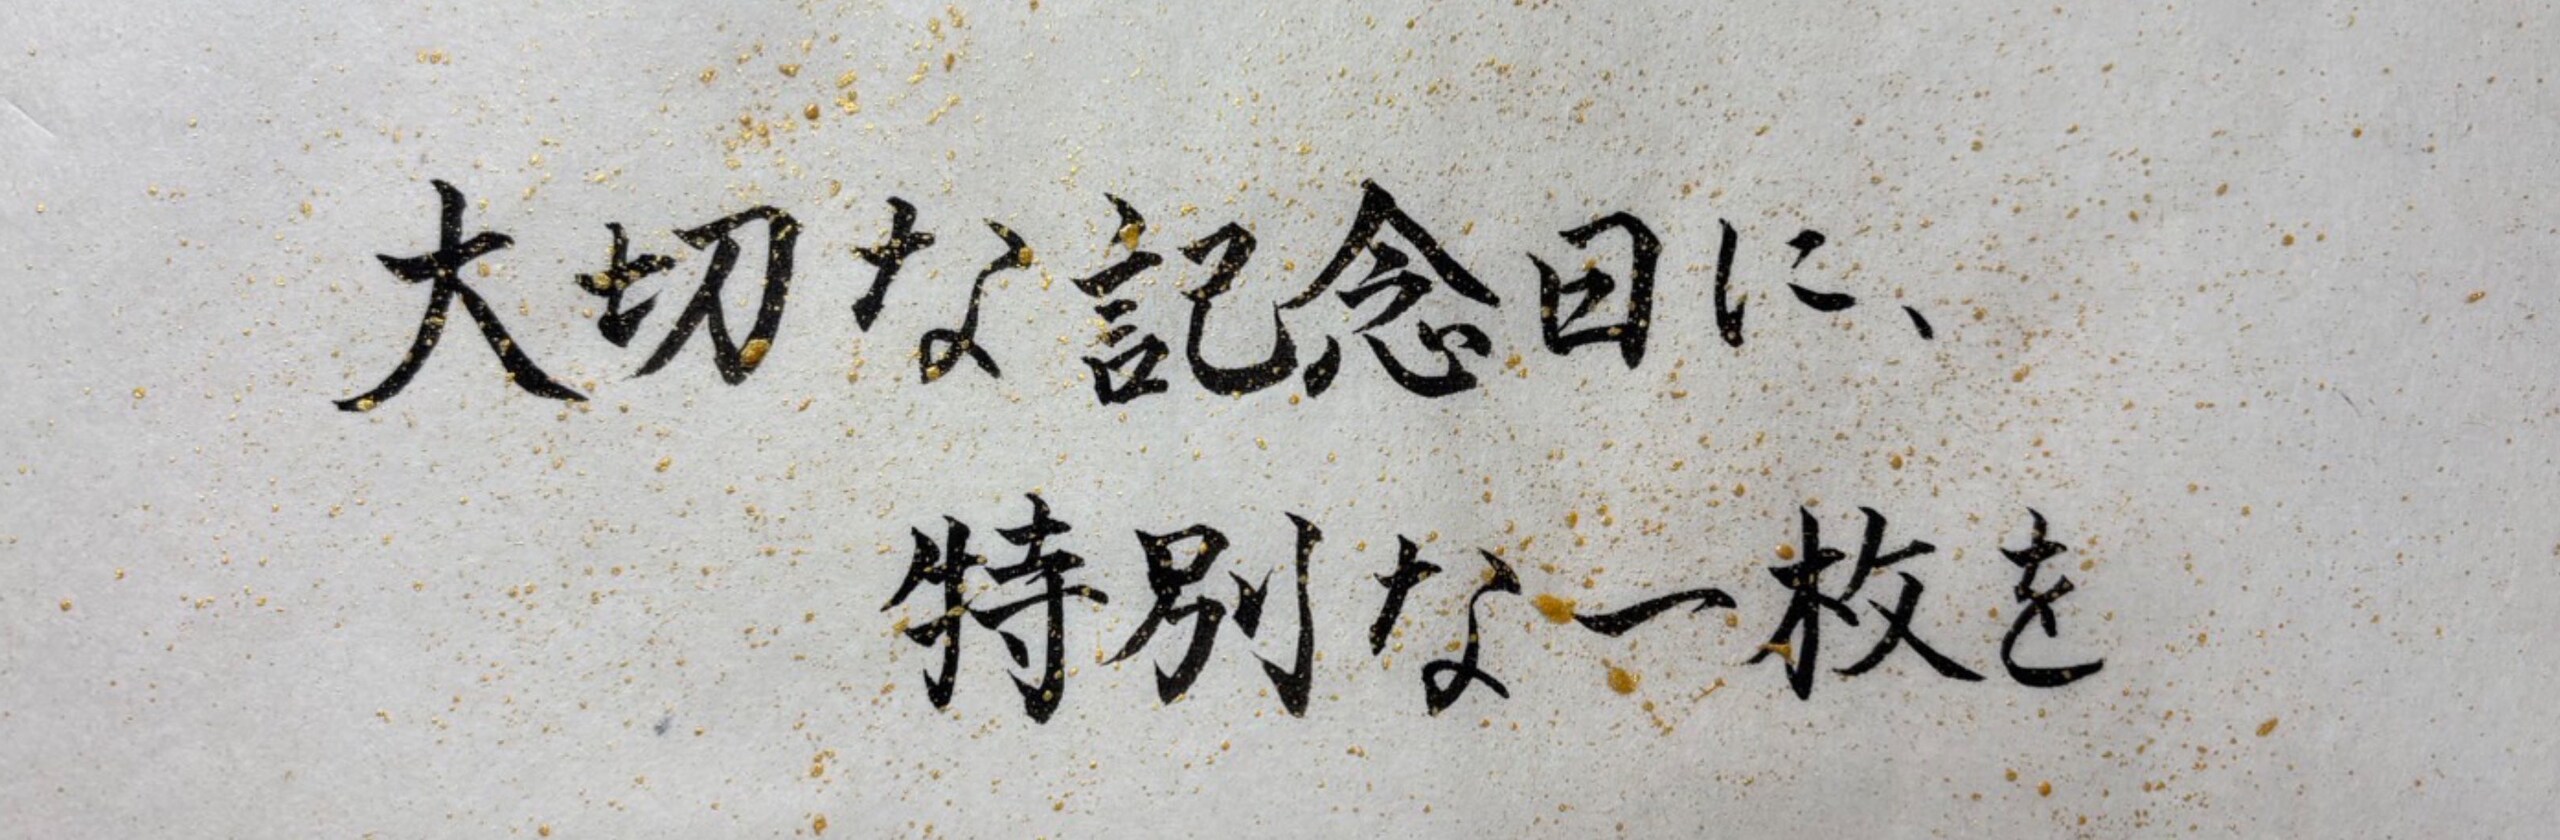 大切な記念日に、
特別な一枚を